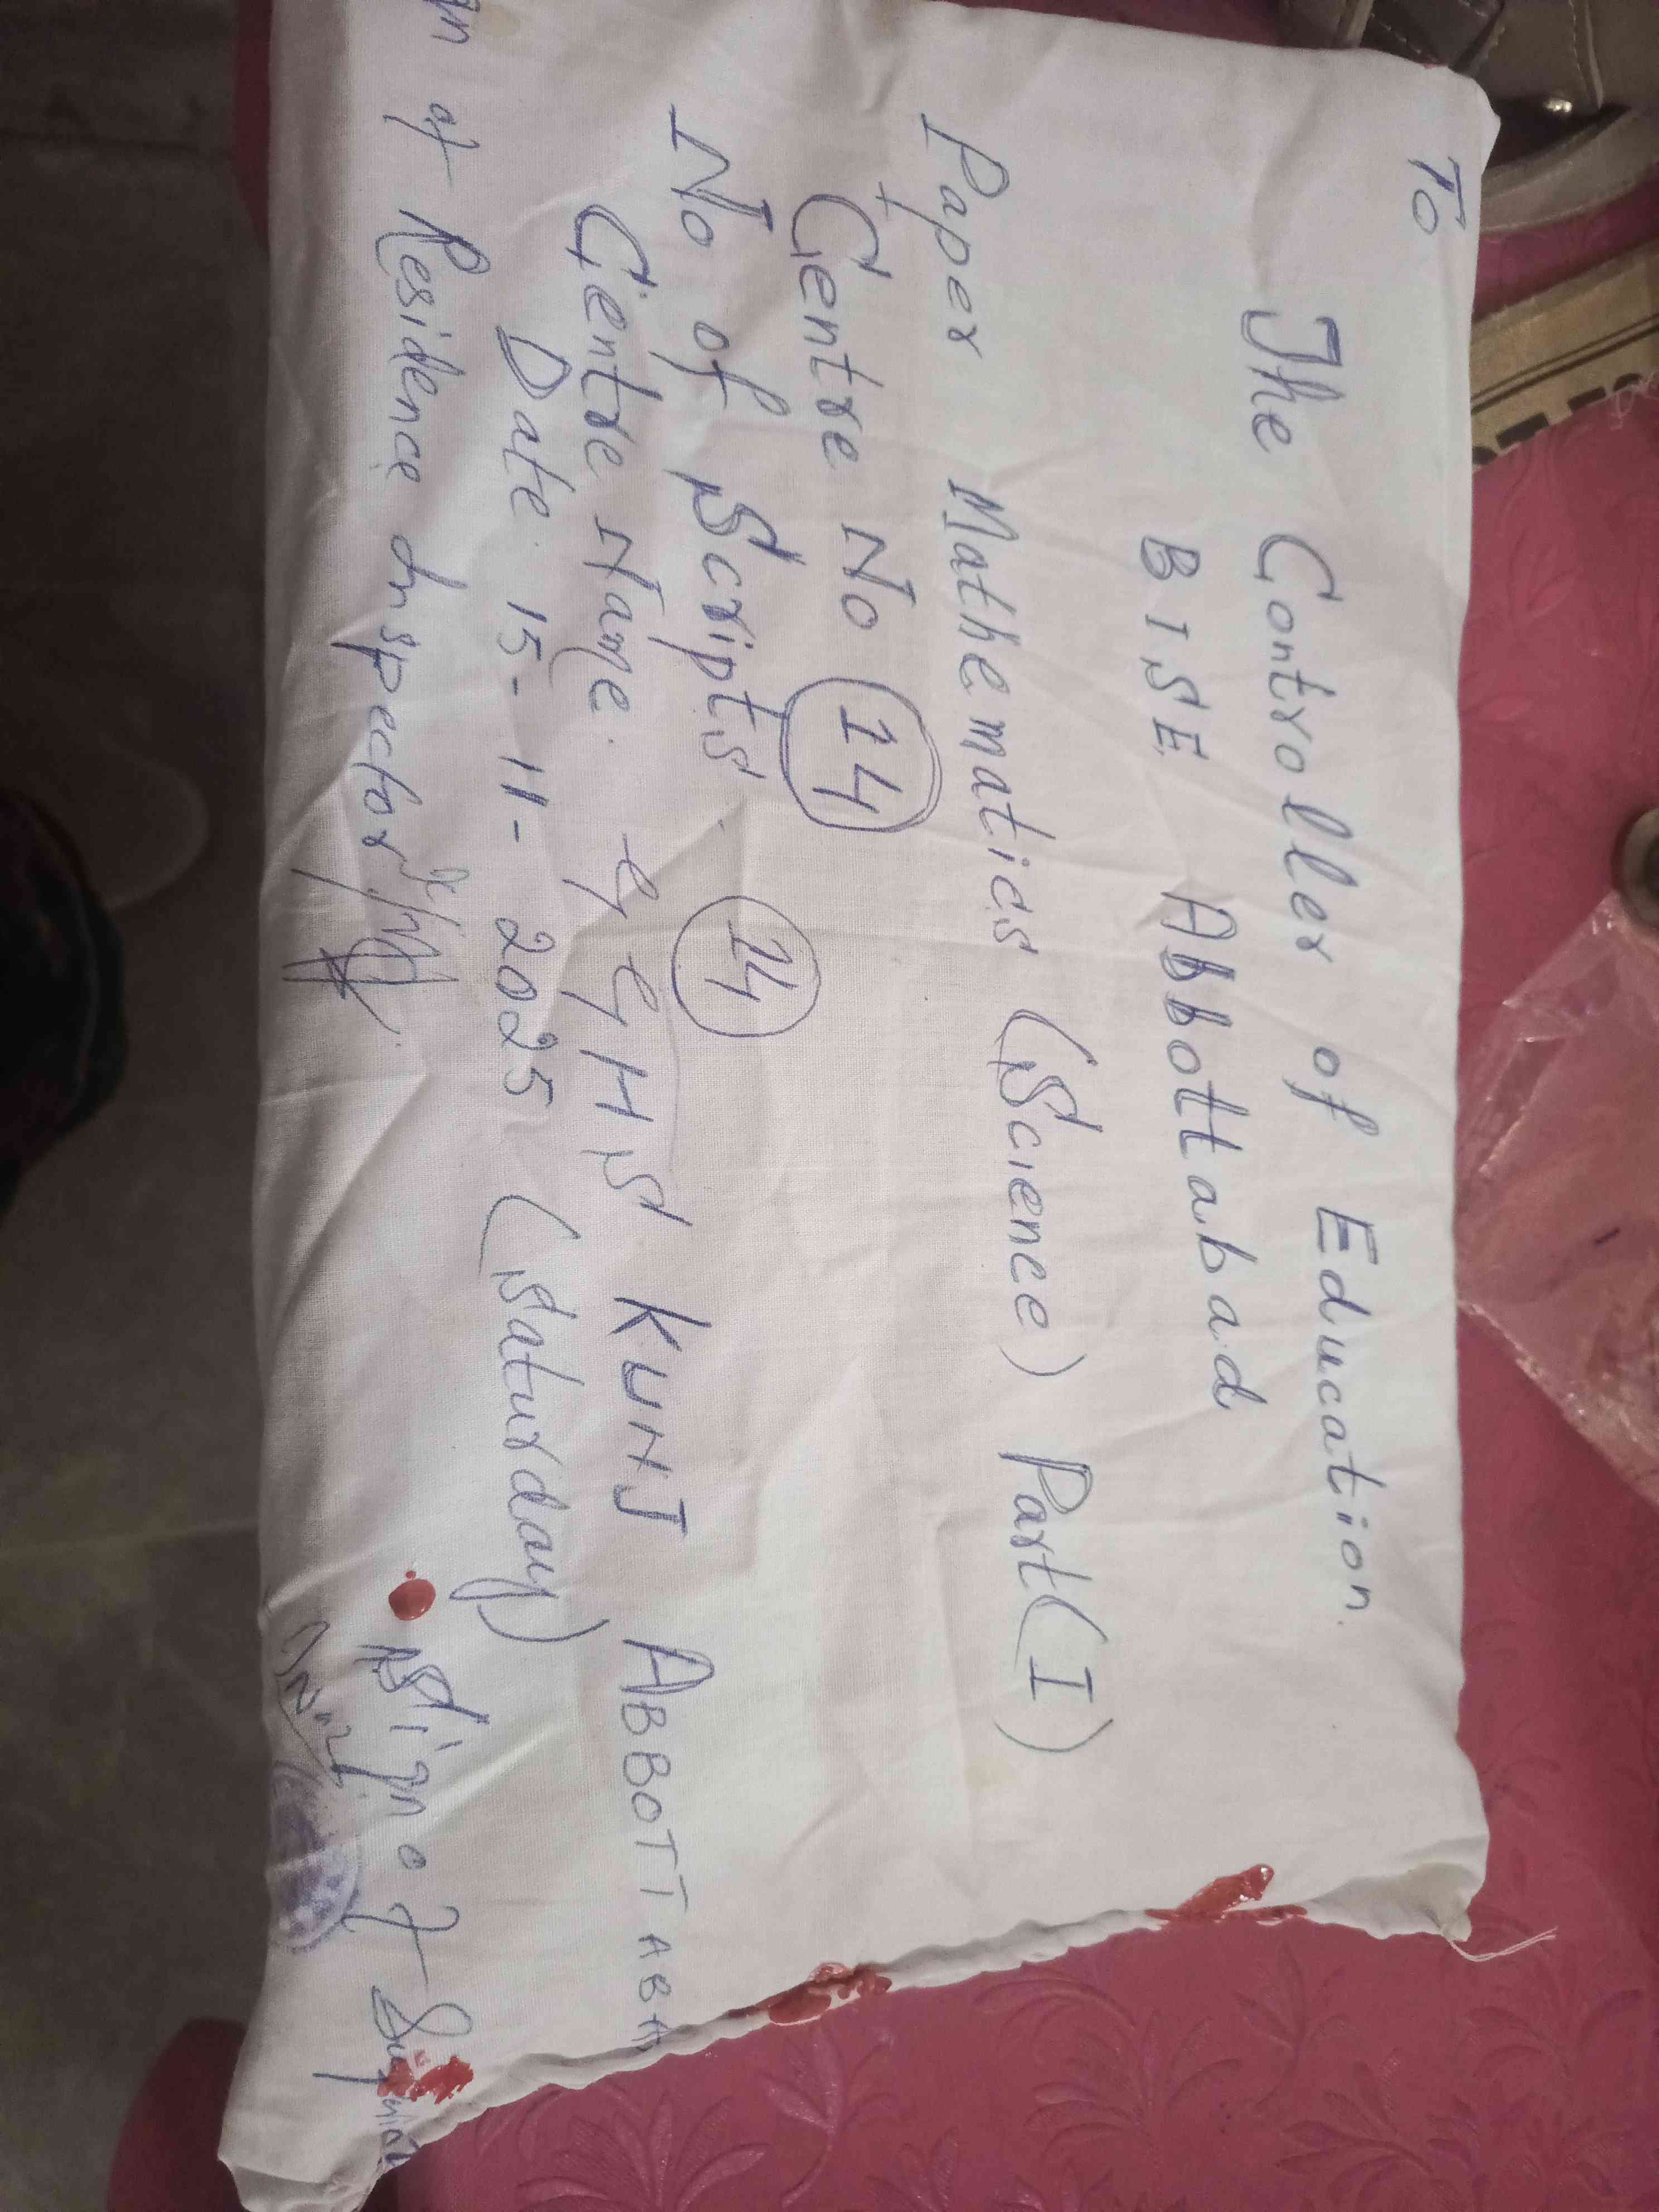 To
The Controller of Education
BISE Abbottabad
Paper Mathematics (Science) Part (I)
Centre No 14
No of Scripts 14
Centre Name. GGHS KUNJ ABBOTTABA
Date 15-11-2025 (Saturday)
of Residence Inspector
Sign of